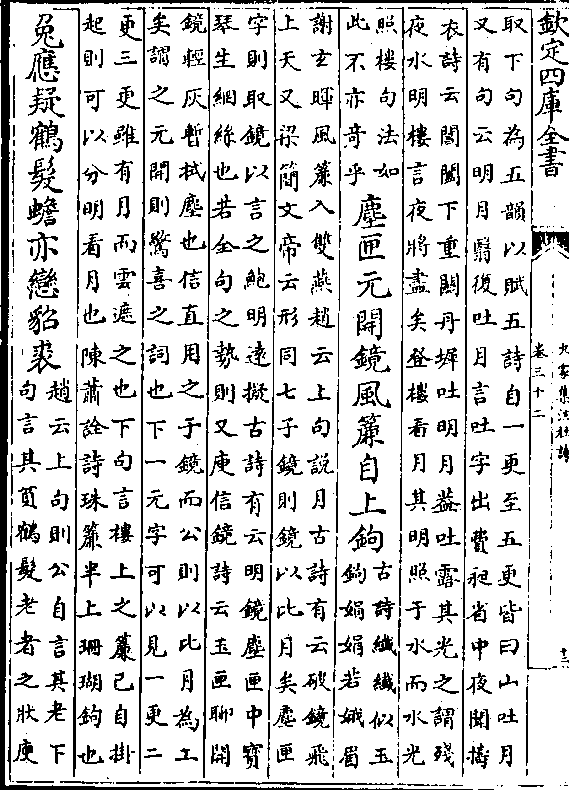 欽定四庫全書
九家集注杜詩
卷三十二
十二
取下句為五韻以賦五詩自一更至五更皆曰山吐月
又有句云明月翳復吐月言吐字出費昶省中夜聞擣
衣詩云閶闔下重關丹墀吐明月葢吐露其光之謂殘
夜水明樓言夜將盡矣登樓看月其明照于水而水光
照樓句法如
此不亦竒乎
塵匣元開鏡風簾自上鉤
古詩纎纎似玉
鉤娟娟若娥眉
謝玄暉風簾入雙燕趙云上句説月古詩有云破鏡飛
上天又梁簡文帝云形同七子鏡則鏡以比月矣塵匣
字則取鏡以言之鮑明逺擬古詩有云明鏡塵匣中寳
琴生網絲也若全句之勢則又庾信鏡詩云玉匣聊開
鏡輕灰暫拭塵也信直用之于鏡而公則以比月為工
矣謂之元開則驚喜之詞也下一元字可以見一更二
更三更雖有月而雲遮之也下句言樓上之簾已自掛
起則可以分明看月也陳蕭詮詩珠簾半上珊瑚鉤也
兔應疑鶴髮蟾亦戀貂裘
趙云上句則公自言其老下
句言其貧鶴髮老者之狀庾